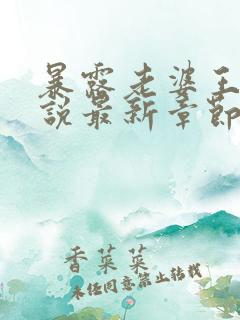 暴露老婆王
说最新章节
香菜菜
未经同意禁止转载